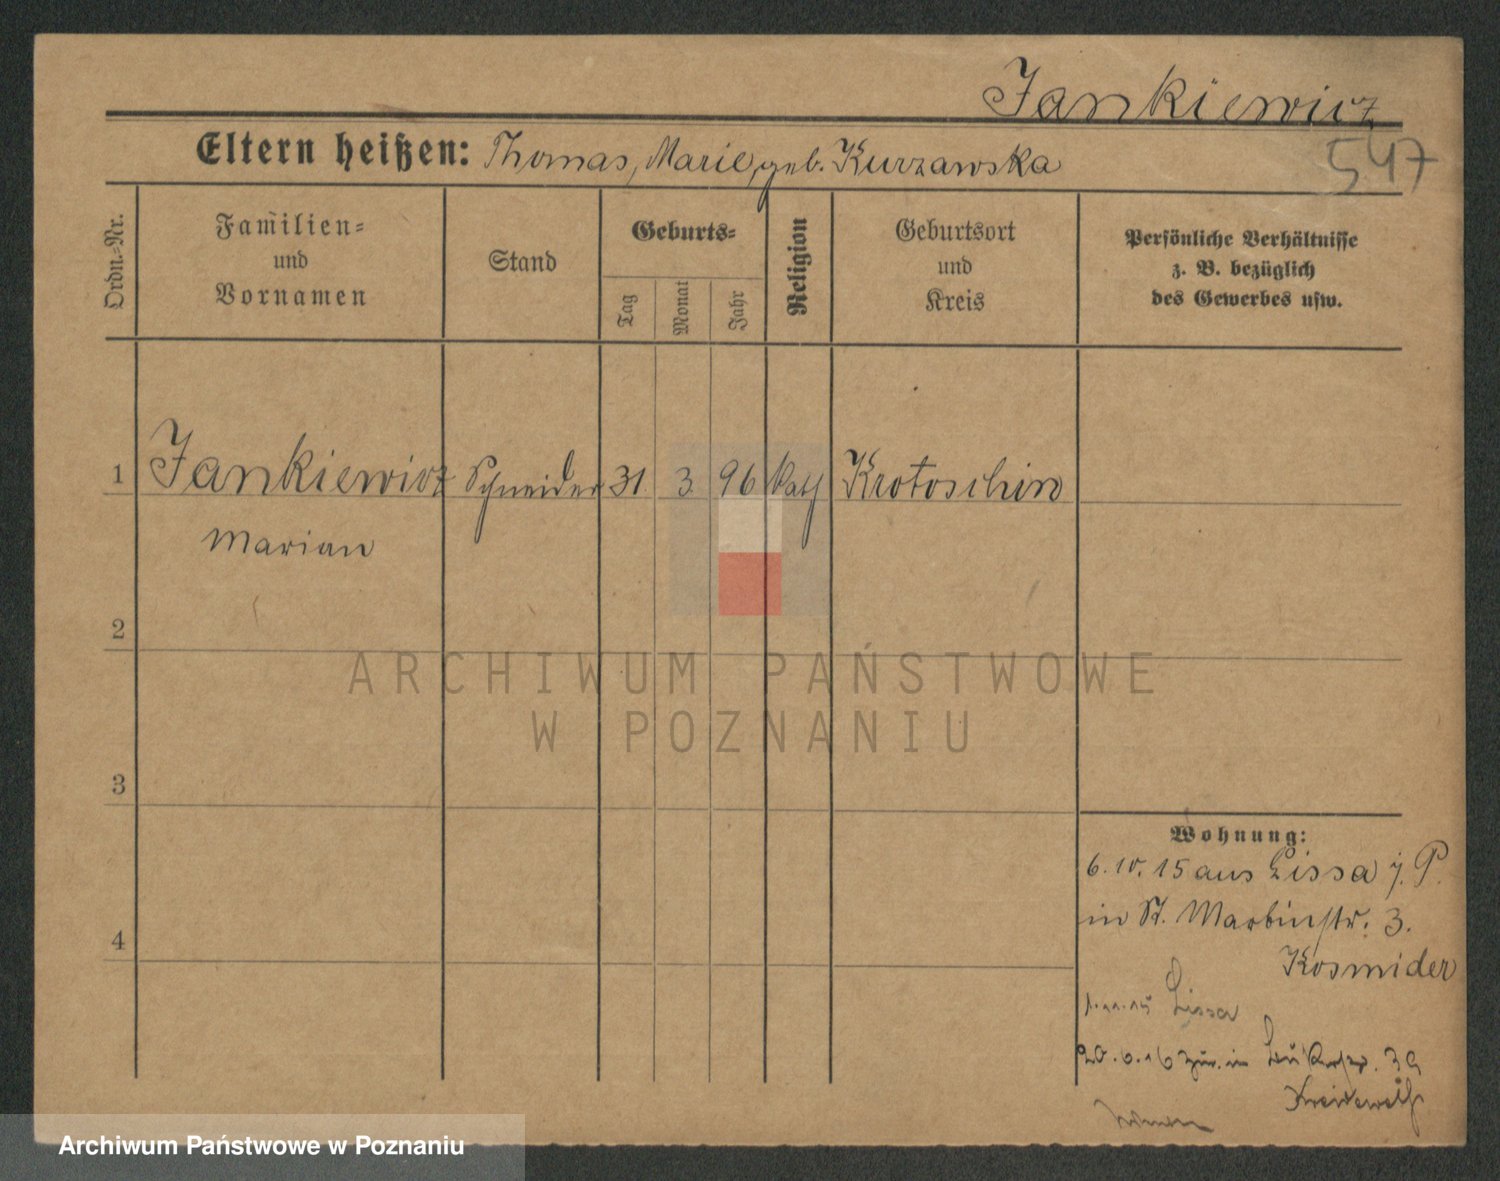 Jankiewicz
547
Eltern heißen: Thomas, Marie, geb. Kurzawska
Ordn.-Nr.
Familien-
und
Vornamen
Stand
Geburts-
Tag
Monat
Jahr
Religion
Geburtsort
und
Kreis
Persönliche Verhältnisse
z. B. bezüglich
des Gewerbes usw.
1 Jankiewicz Schneider 31. 3. 96 kath Krotoschin
Marian
2
3
4
Wohnung:
6. 10. 15 aus Lissa i. P.
in St. Martinstr. 3.
Kosmider
Lissa
20. 6. 16 zur. in 39
ARCHIWUM PAŃSTWOWE
W POZNANIU
Archiwum Państwowe w Poznaniu